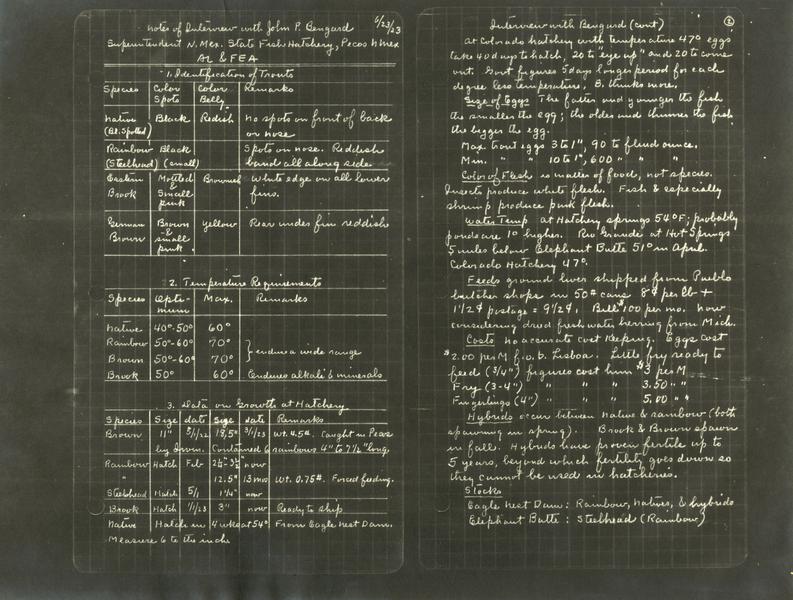 Notes of Interview with John P. Bengard 6/23/23
Superintendent N. Mex. State Fish Hatchery, Pecos N Mex
AL & FEA
1. Identification of Trouts
Species Color Spots Color Belly Remarks
Native (Bl. Spotted) Black Redish No spots on front of back or nose
Rainbow (Steelhead) Black (small) Spots on nose. Reddish band all along side
Eastern Brook Mottled & Small pink Brownish White edge on all lower fins.
German Brown Brown & small pink Yellow Rear under fin reddish
2. Temperature Requirements
Species Opti-mum Max. Remarks
Native 40°-50° 60°
Rainbow 50°-60° 70°
Brown 50°-60° 70° } endure a wide range
Brook 50° 60° Endures alkali & minerals
3. Data on Growth at Hatchery
Species Size date Size date Remarks
Brown 11" 5/1/22 18.5" 3/1/23 Wt. 4.5#. Caught in Pecos
by Irvin. Contained 6 rainbows 4" to 7½" long.
Rainbow Hatch Feb 2½"-3½" now
" 12.5" 13 mos Wt. 0.75#. Forced feeding.
Steelhead Hatch 5/1 1¼" now
Brook Hatch 1/1/23 3" now Ready to ship
Native Hatch in 4 wks at 54° From Eagle Nest Dam.
Measure 6 to the inch
Interview with Bengard (cont) 2
At Colorado hatchery with temperature 47° eggs
take 40 days to hatch, 20 to "eye up" and 20 to come
out. Govt figures 5 days longer period for each
degree less temperature, B. thinks more.
Size of Eggs The fatter and younger the fish
the smaller the egg; the older and thinner the fish
the bigger the egg.
Max trout eggs 3 to 1", 90 to fluid ounce.
Min. " " 10 to 1", 600 " " "
Color of Flesh is matter of food, not species.
Insects produce white flesh. Fish & especially
shrimp produce pink flesh.
Water Temp at Hatchery springs 54°F; probably
ponds are 1° higher. Rio Grande at Hot Springs
5 miles below Elephant Butte 51° in April.
Colorado Hatchery 47°.
Feeds ground liver shipped from Pueblo
butcher shops in 50# cans 8¢ per lb +
1½¢ postage = 9½¢. Bill $100 per mo. Now
considering dried fresh water herring from Mich.
Costs no accurate cost keeping. Eggs cost
$2.00 per M f.o.b. Lisboa. Little fry ready to
feed (3/4") figures cost him $3 per M
Fry (3-4") " " " 3.50 " "
Fingerlings (4") " " " 5.00 " "
Hybrids occur between Native & rainbow (both
spawning in spring). Brook & Brown spawn
in fall. Hybrids have proven fertile up to
5 years, beyond which fertility goes down so
they cannot be used in hatcheries.
Stocks
Eagle Nest Dam: Rainbow, Natives, & hybrids
Elephant Butte: Steelhead (Rainbow)